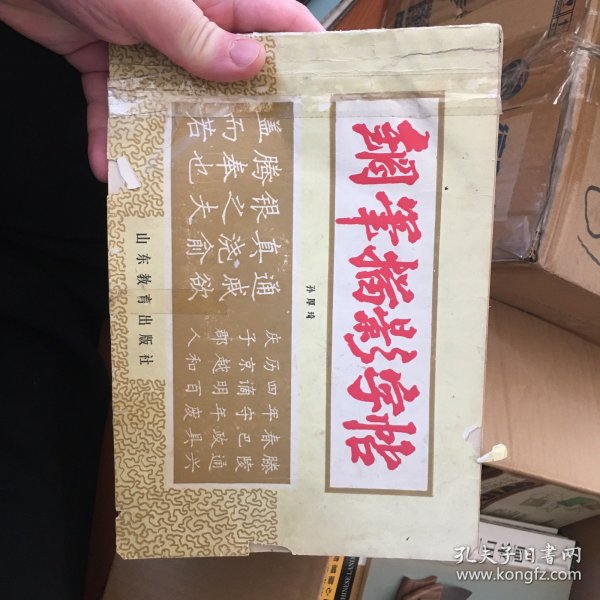 鋼筆描影字帖
孙厚琦
盖腾银真通
而奉之浇戚
若也夫俞欲
庆历四年春滕
子京谪守巴陵
郡越明年政通
人和百废具兴
山东教育出版社
孔夫子旧书网
www.kongfz.com